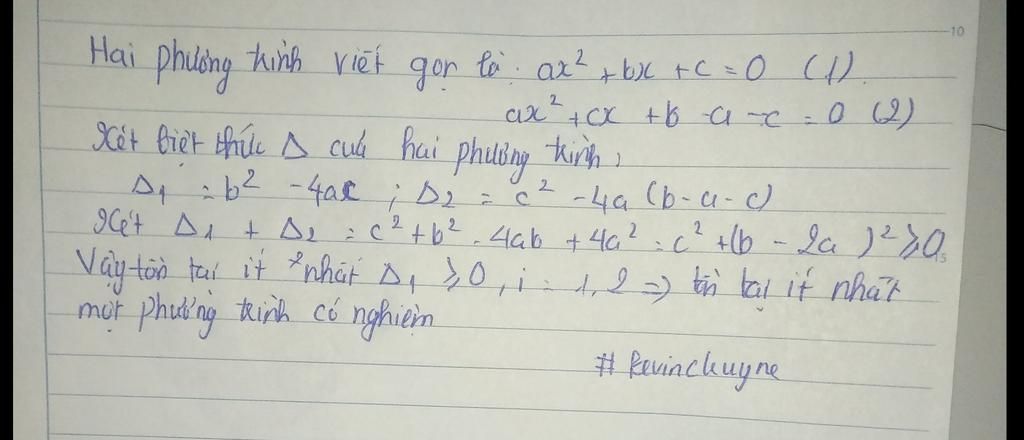 10
Hai phương trình viết gọn là: ax² + bx + c = 0 (1).
ax² + cx + b - a - c = 0 (2)
Xét biệt thức Δ của hai phương trình,
Δ₁ = b² - 4ac ; Δ₂ = c² - 4a (b - a - c)
Xét Δ₁ + Δ₂ = c² + b² - 4ab + 4a² = c² + (b - 2a)² ≥ 0
Vậy tồn tại ít nhất Δ₁ ≥ 0, i = 1, 2 => tồn tại ít nhất
một phương trình có nghiệm
# kevinchuyne